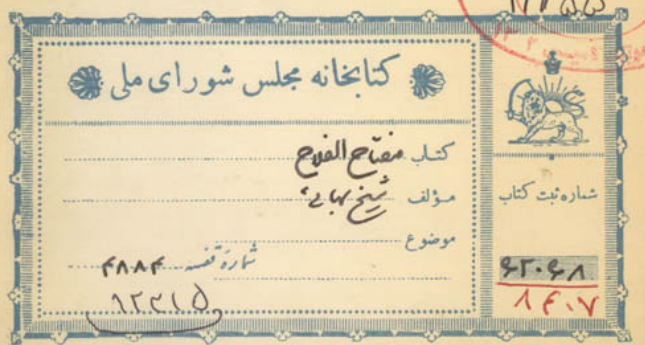 کتابخانه مجلس شورای ملی
کتاب مفتاح الفلاح
مؤلف شیخ بهائی
موضوع
شمارهٔ قفسه ۴۸۸۴
۱۲۴۱۵
شماره ثبت کتاب
۶۲۰۶۸
۸۴۰۷